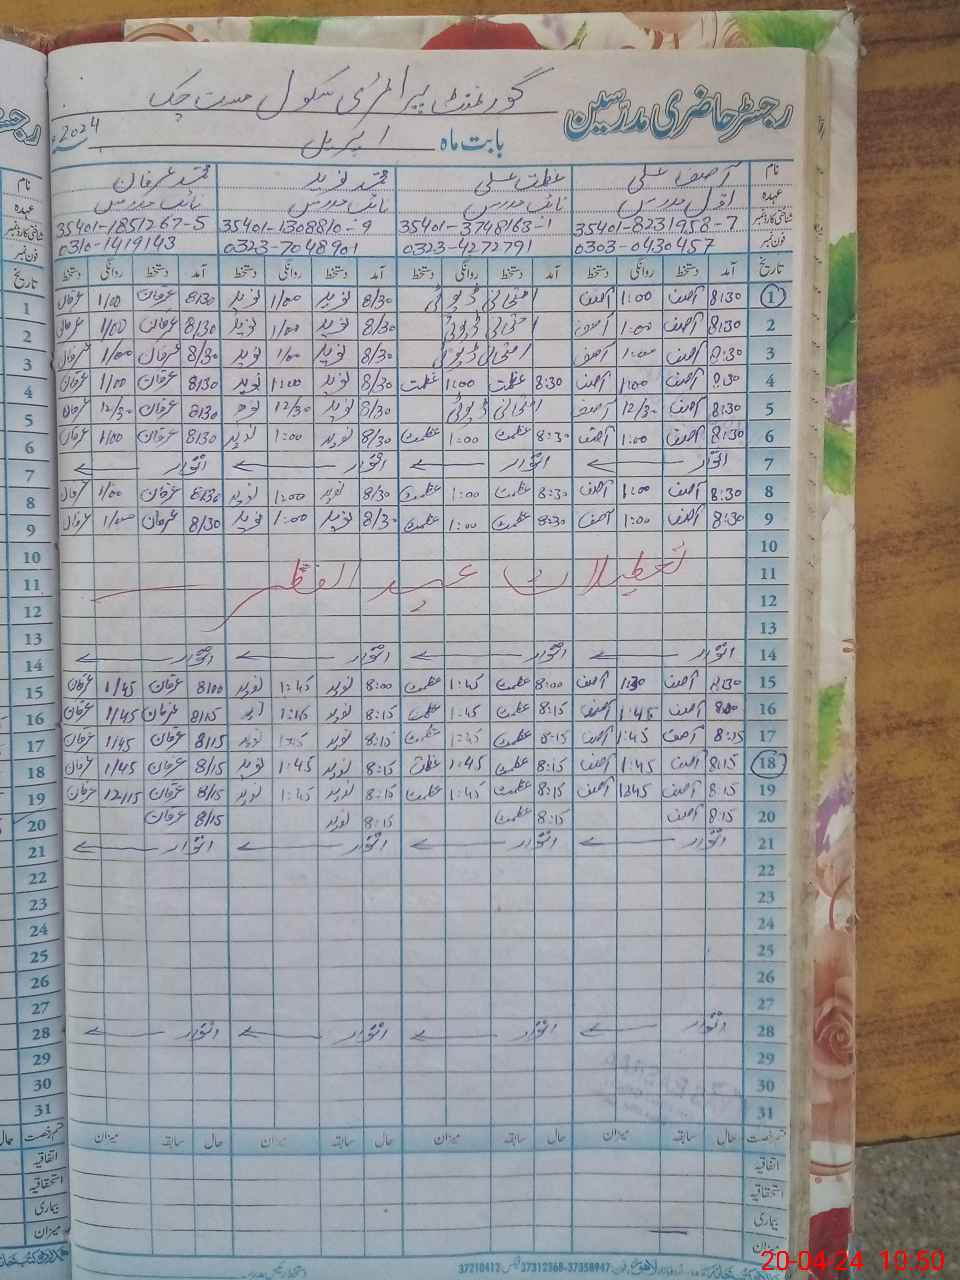 رجسٹر حاضری مدرسین گورنمنٹ پرائمری سکول مست چک
بابت ماہ اپریل 2024
نام آصف علی عظمت علی محمد نوید محمد عرفان
عہدہ اول مدرس نائب مدرس نائب مدرس نائب مدرس
شناختی کارڈ نمبر 35401-8231958-7 35401-3748163-1 35401-1308810-9 35401-1851267-5
فون نمبر 0303-0430457 0323-4272791 0323-7048901 0310-1419143
تاریخ آمد دستخط روانگی دستخط آمد دستخط روانگی دستخط آمد دستخط روانگی دستخط آمد دستخط روانگی دستخط
1 8:30 آصف 1:00 آصف امتحانی ڈیوٹی 8/30 نوید 1/00 نوید 8/30 عرفان 1/00 عرفان
2 8:30 آصف 1:00 آصف امتحانی ڈیوٹی 8/30 نوید 1/00 نوید 8/30 عرفان 1/00 عرفان
3 8:30 آصف 1:00 آصف امتحانی ڈیوٹی 8/30 نوید 1/00 نوید 8/30 عرفان 1/00 عرفان
4 8:30 آصف 1:00 آصف 8:30 عظمت 1:00 عظمت 8/30 نوید 1:00 نوید 8/30 عرفان 1/00 عرفان
5 8:30 آصف 12/30 آصف امتحانی ڈیوٹی 8/30 نوید 12/30 نوید 8/30 عرفان 12/30 عرفان
6 8:30 آصف 1:00 آصف 8:30 عظمت 1:00 عظمت 8/30 نوید 1:00 نوید 8/30 عرفان 1/00 عرفان
7 اتوار اتوار اتوار اتوار
8 8:30 آصف 1:00 آصف 8:30 عظمت 1:00 عظمت 8/30 نوید 1:00 نوید 8/30 عرفان 1/00 عرفان
9 8:30 آصف 1:00 آصف 8:30 عظمت 1:00 عظمت 8/30 نوید 1:00 نوید 8/30 عرفان 1/00 عرفان
10
11 تعطیلات عید الفطر
12
13
14 اتوار اتوار اتوار اتوار
15 آصف 1:30 آصف 8:00 عظمت 1:45 عظمت 8:00 نوید 1:45 نوید 8/00 عرفان 1/45 عرفان
16 آصف 1:45 آصف 8:15 عظمت 1:45 عظمت 8:15 نوید 1:45 نوید 8/15 عرفان 1/45 عرفان
17 8:15 آصف 1:45 آصف 8:15 عظمت 1:45 عظمت 8:15 نوید 1:45 نوید 8/15 عرفان 1/45 عرفان
18 8:15 آصف 1:45 آصف 8:15 عظمت 1:45 عظمت 8:15 نوید 1:45 نوید 8/15 عرفان 1/45 عرفان
19 8:15 آصف 1245 آصف 8:15 عظمت 1:45 عظمت 8:15 نوید 1:45 نوید 8/15 عرفان 12/15 عرفان
20 8:15 آصف 8:15 عظمت 8:15 نوید 8/15 عرفان
21 اتوار اتوار اتوار اتوار
22
23
24
25
26
27
28 اتوار اتوار اتوار اتوار
29
30
31
قسم رخصت حال سابقہ میزان حال سابقہ میزان حال سابقہ میزان حال سابقہ میزان
اتفاقیہ
استحقاقیہ
بیماری
میزان
37210412 37312368-37358947
20-04-24 10:50